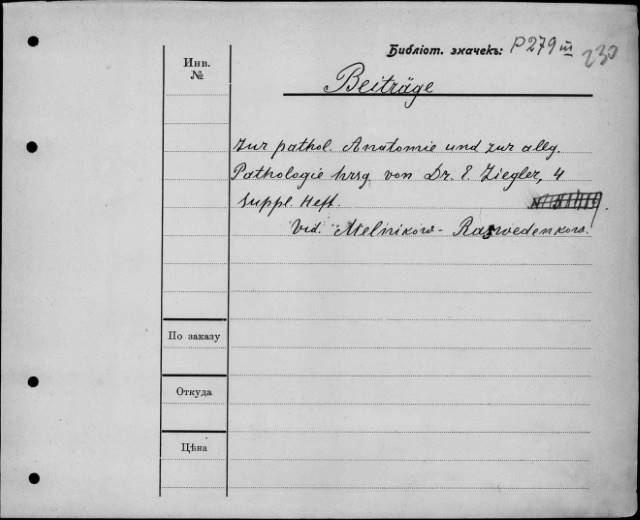 Библіот. значекъ: P 279 III 230
Инв.
№
Beiträge
zur pathol. Anatomie und zur allg.
Pathologie hrsg von Dr. E. Ziegler, 4
Suppl. Heft.
Vid. Melnikow-Raswedenkow.
По заказу
Откуда
Цѣна